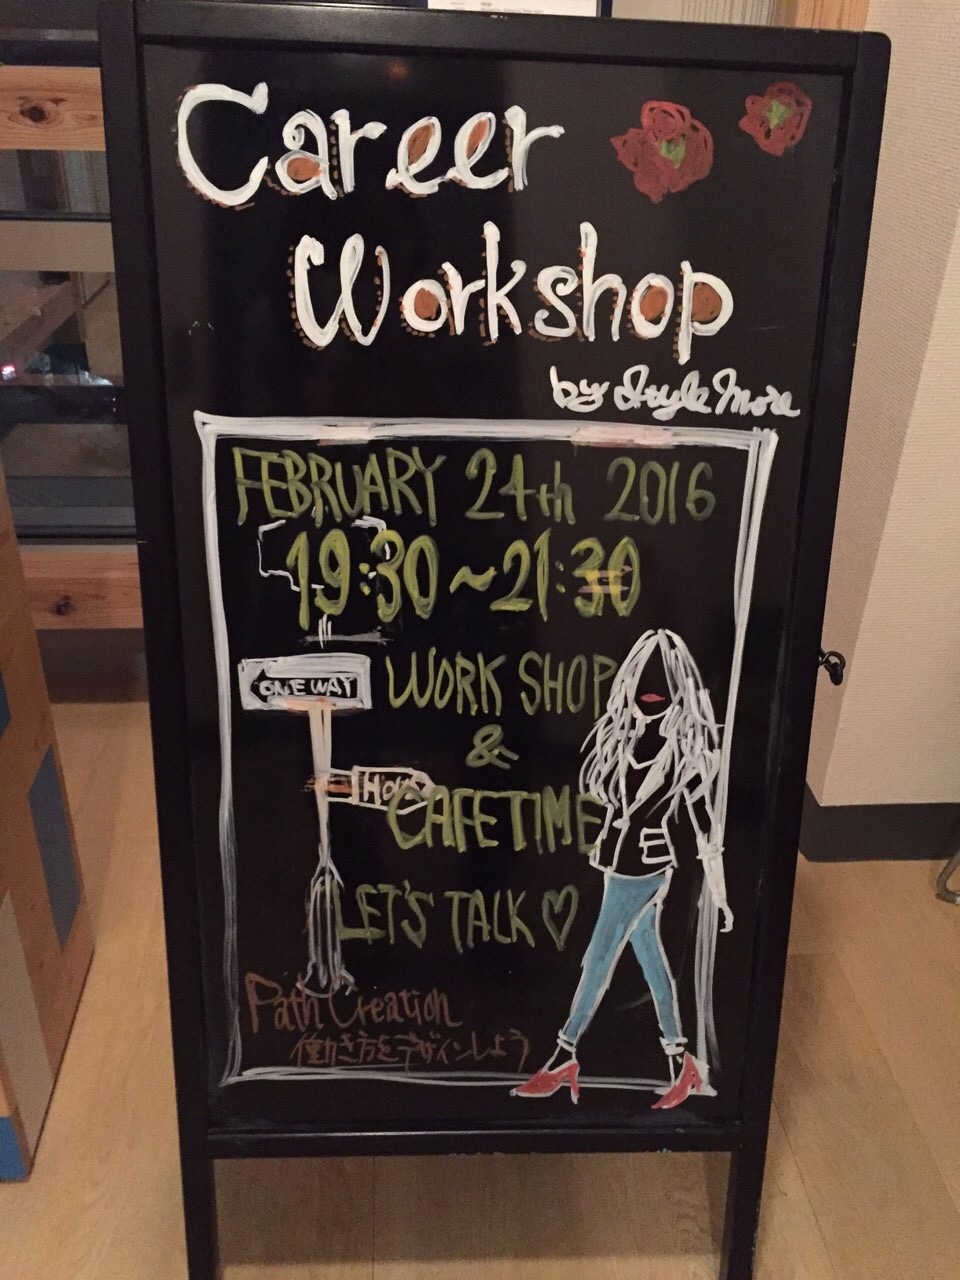 Career
Workshop
by Style More
FEBRUARY 24th 2016
19:30~21:30
ONE WAY
WORK SHOP
&
CAFETIME
LET'S TALK♡
Path Creation
働き方をデザインしよう